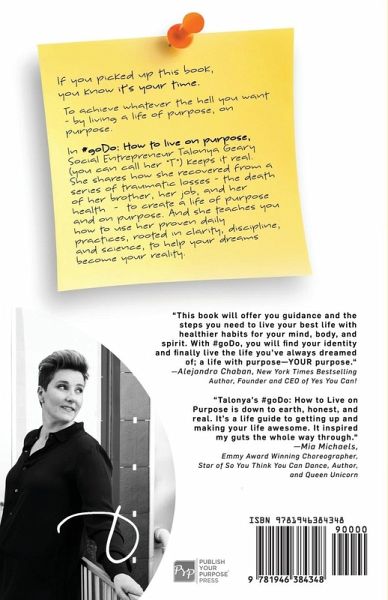 If you picked up this book,
you know it's your time.
To achieve whatever the hell you want
- by living a life of purpose, on
purpose.
In #goDo: How to live on purpose,
Social Entrepreneur Talonya Geary
(you can call her "T") keeps it real.
She shares how she recovered from a
series of traumatic losses - the death
of her brother, her job, and her
health - to create a life of purpose
and on purpose. And she teaches you
how to use her proven daily
practices, rooted in clarity, discipline,
and science, to help your dreams
become your reality.
"This book will offer you guidance and
the steps you need to live your best life with
healthier habits for your mind, body, and
spirit. With #goDo, you will find your identity
and finally live the life you've always dreamed
of; a life with purpose—YOUR purpose."
—Alejandro Chaban, New York Times Bestselling
Author, Founder and CEO of Yes You Can!
"Talonya's #goDo: How to Live on
Purpose is down to earth, honest, and
real. It's a life guide to getting up and
making your life awesome. It inspired
my guts the whole way through."
—Mia Michaels,
Emmy Award Winning Choreographer,
Star of So You Think You Can Dance, Author,
and Queen Unicorn
ISBN 9781946384348
90000
9 781946 384348
PYP
PUBLISH
YOUR
PURPOSE
PRESS